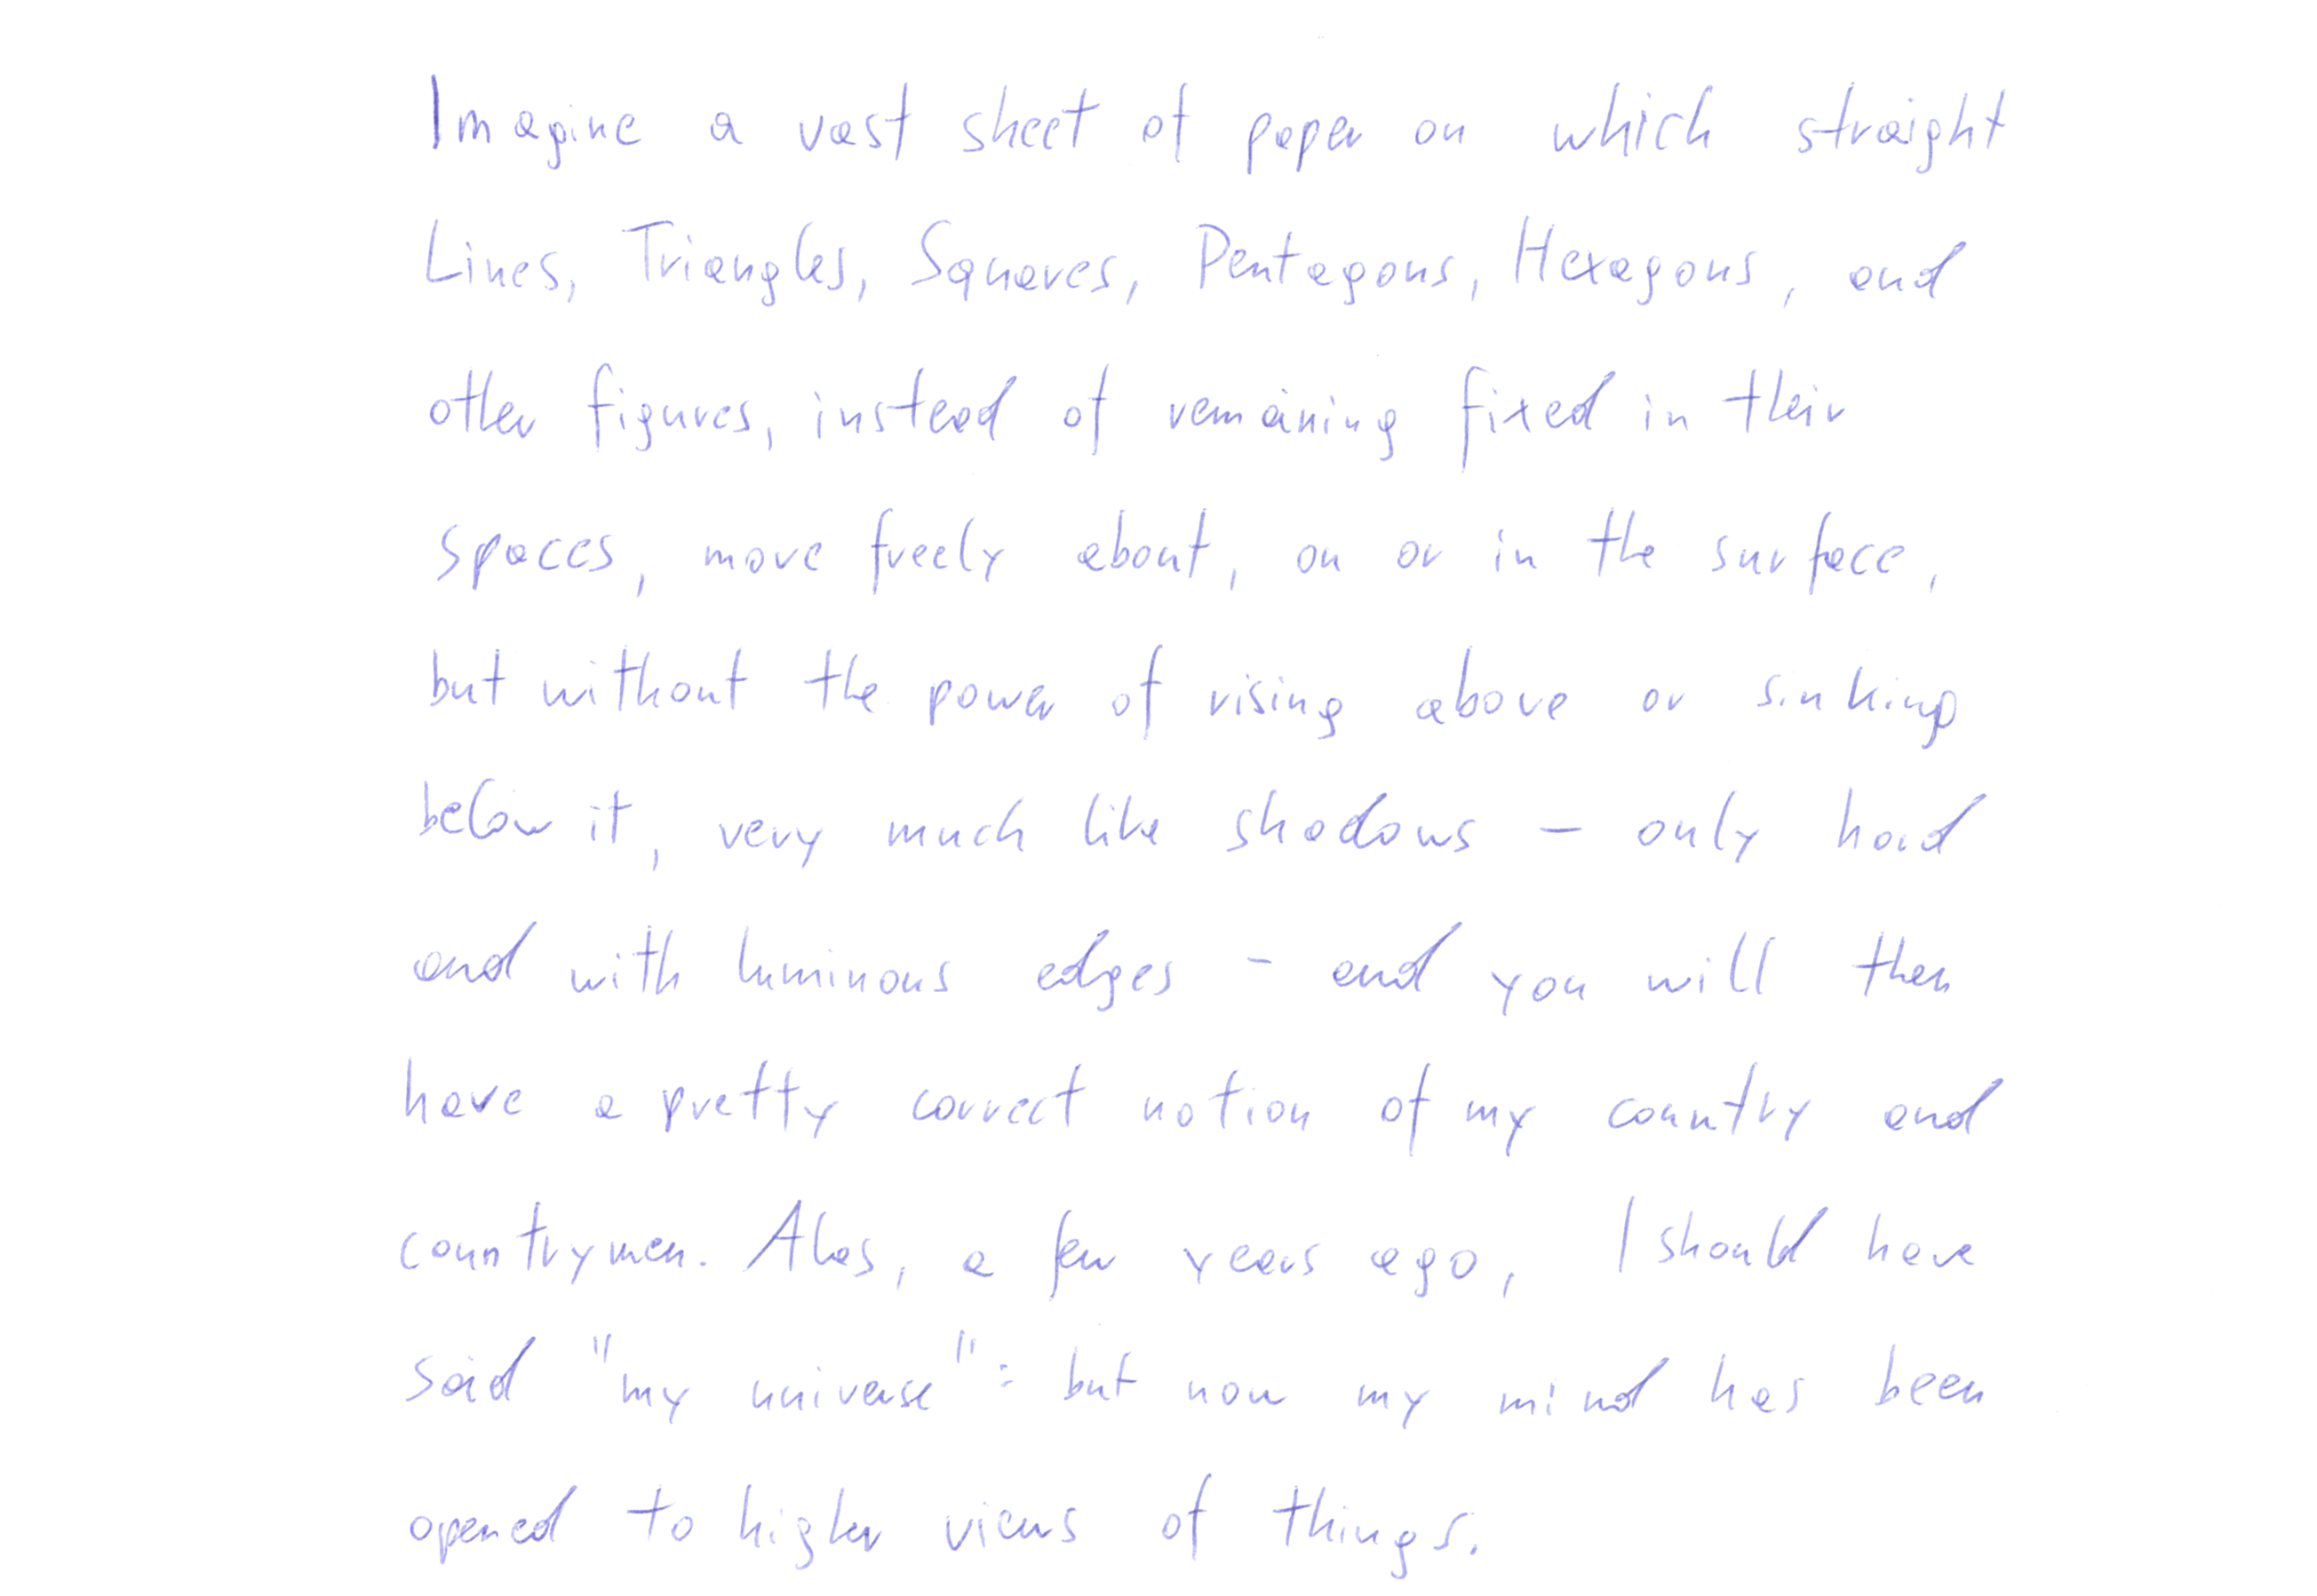 Imagine a vast sheet of paper on which straight
Lines, Triangles, Squares, Pentagons, Hexagons, and
other figures, instead of remaining fixed in their
spaces, move freely about, on or in the surface,
but without the power of rising above or sinking
below it, very much like shadows - only hard
and with luminous edges - and you will then
have a pretty correct notion of my country and
countrymen. Alas, a few years ago, I should have
said "my universe": but now my mind has been
opened to higher views of things.